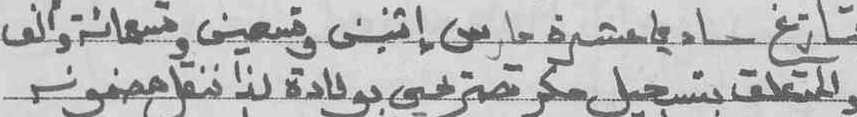 بتاريخ سادع عشرة مارس إثنين وتسعين وتسعمائة وألف
والمتعلق بتسجيل حكم تصريحي بولادة لذا ننقل مضمونه